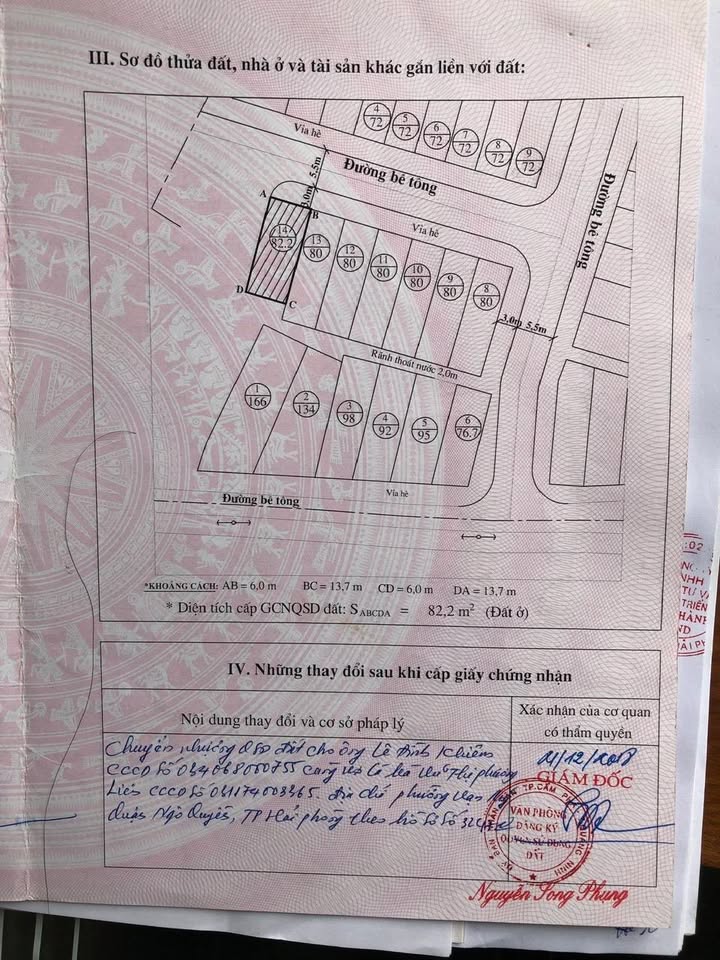 III. Sơ đồ thửa đất, nhà ở và tài sản khác gắn liền với đất:
4
72
5
72
6
72
7
72
8
72
9
72
Vỉa hè
Đường bê tông
3.0m 5,5m
Đường bê tông
A
B
Vỉa hè
14
82.2
13
80
12
80
11
80
10
80
9
80
8
80
D
C
3.0m 5,5m
Rãnh thoát nước 2,0m
1
166
2
134
3
98
4
92
5
95
6
76.7
Vỉa hè
Đường bê tông
*KHOẢNG CÁCH: AB = 6,0 m BC = 13,7 m CD = 6,0 m DA = 13,7 m
* Diện tích cấp GCNQSD đất: S ABCDA = 82,2 m² (Đất ở)
IV. Những thay đổi sau khi cấp giấy chứng nhận
Nội dung thay đổi và cơ sở pháp lý
Xác nhận của cơ quan
có thẩm quyền
Chuyển nhượng QSD đất cho ông Lê Đình Khiêm
CCCD số cùng vợ là bà Phương
Liên CCCD số Địa chỉ phường Vạn
Quận Ngô Quyền, TP Hải phòng theo hồ sơ số
/12/2018
GIÁM ĐỐC
VĂN PHÒNG
ĐĂNG KÝ
QUYỀN SỬ DỤNG
ĐẤT
TP.CẨM QUẢNG NINH
Nguyễn Song Phung
:02
NHH
TƯ VẤ
TRIỂN
HÀNH
ND
HẢI PH